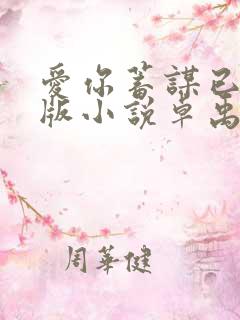 愛你蓄謀已
版小說卓禹
周華健